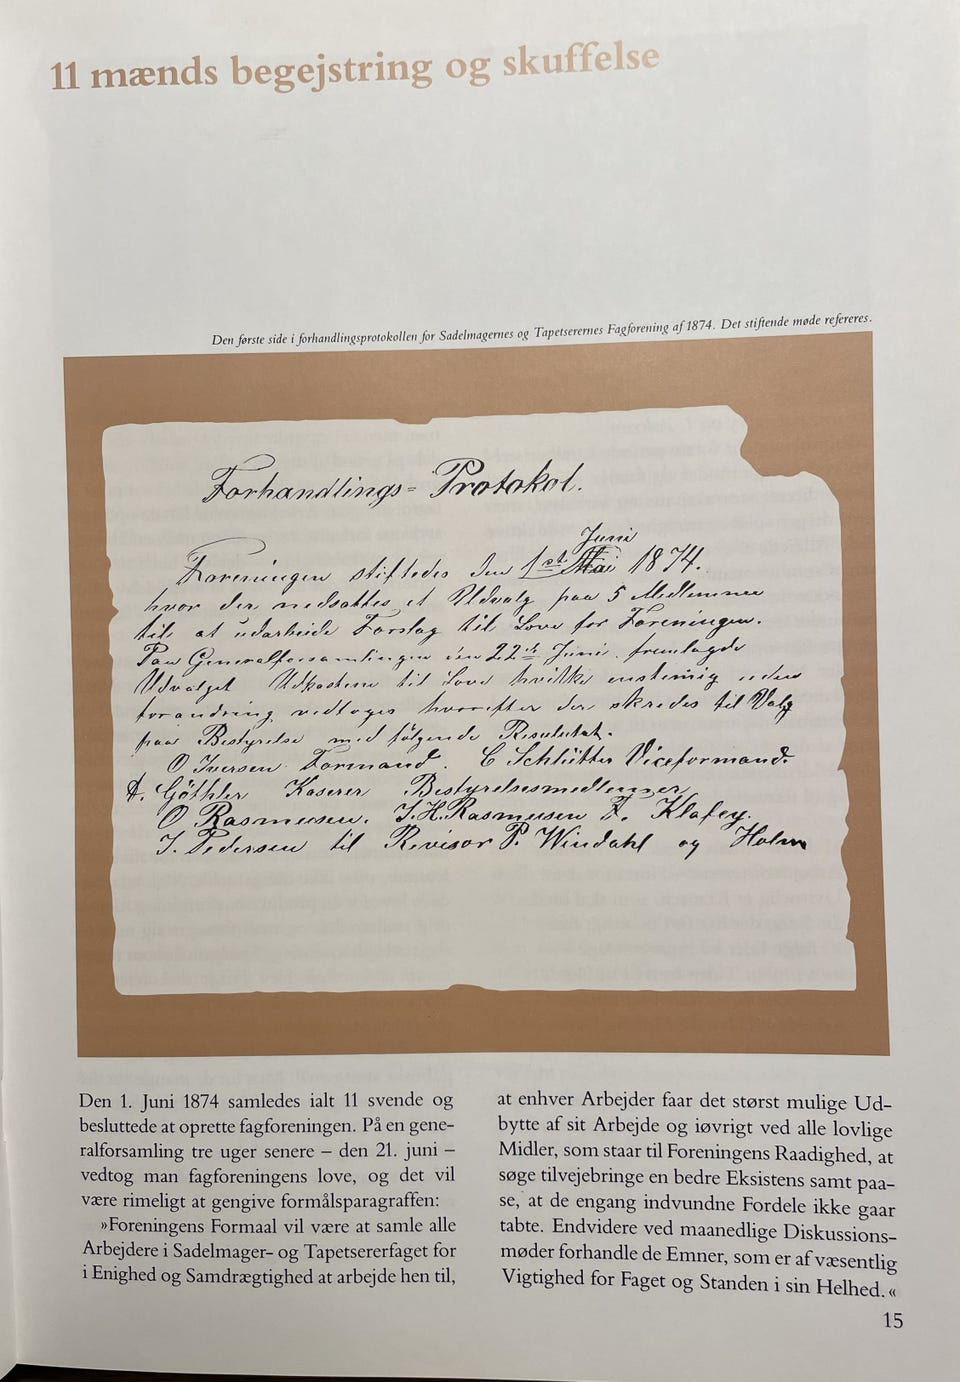 11 mænds begejstring og skuffelse
Den første side i forhandlingsprotokollen for Sadelmagernes og Tapetserernes Fagforening af 1874. Det stiftende møde refereres.
Forhandlings=Protokol.
Juni
Foreningen stiftedes den 1st. Mai 1874.
hvor der nedsattes et Udvalg paa 5 Medlemmer
til at udarbeide Forslag til Love for Foreningen.
Paa Generalforsamlingen den 22de Juni fremlagde
Udvalget Udkastene til Love hvilke enstemig uden
forandring vedtoges hvorefter der skredes til Valg
paa Bestyrelse med følgende Resultat.
O Iversen Formand. C Schlütter Viceformand.
A. Göthler Kaserer Bestyrelsesmedlemmer
O Rasmussen. J.H.Rasmussen F. Klafey.
J. Pedersen til Revisor P. Windahl og Holm
Den 1. Juni 1874 samledes ialt 11 svende og
besluttede at oprette fagforeningen. På en gene-
ralforsamling tre uger senere – den 21. juni –
vedtog man fagforeningens love, og det vil
være rimeligt at gengive formålsparagraffen:
»Foreningens Formaal vil være at samle alle
Arbejdere i Sadelmager- og Tapetsererfaget for
i Enighed og Samdrægtighed at arbejde hen til,
at enhver Arbejder faar det størst mulige Ud-
bytte af sit Arbejde og iøvrigt ved alle lovlige
Midler, som staar til Foreningens Raadighed, at
søge tilvejebringe en bedre Eksistens samt paa-
se, at de engang indvundne Fordele ikke gaar
tabte. Endvidere ved maanedlige Diskussions-
møder forhandle de Emner, som er af væsentlig
Vigtighed for Faget og Standen i sin Helhed.«
15